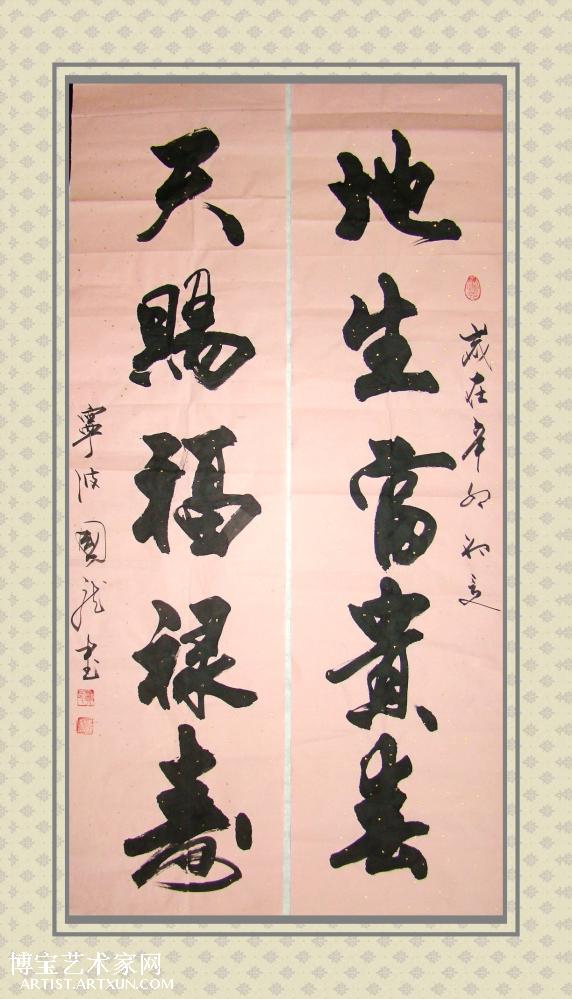 歲在辛卯初夏
地生富貴春
天賜福禄壽
寧波國龍書
博宝艺术家网
ARTIST.ARTXUN.COM